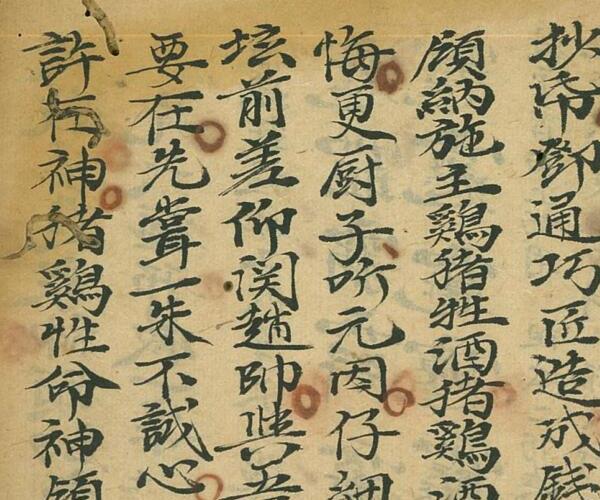 抄帋鄧通巧匠造成錢
頋納施主鷄猪牲酒猪鷄酒
悔更厨子听元因仔細
坛前差仰関趙帥興吾
要在先嘗一朱不誠心
許神猪鷄性命神領